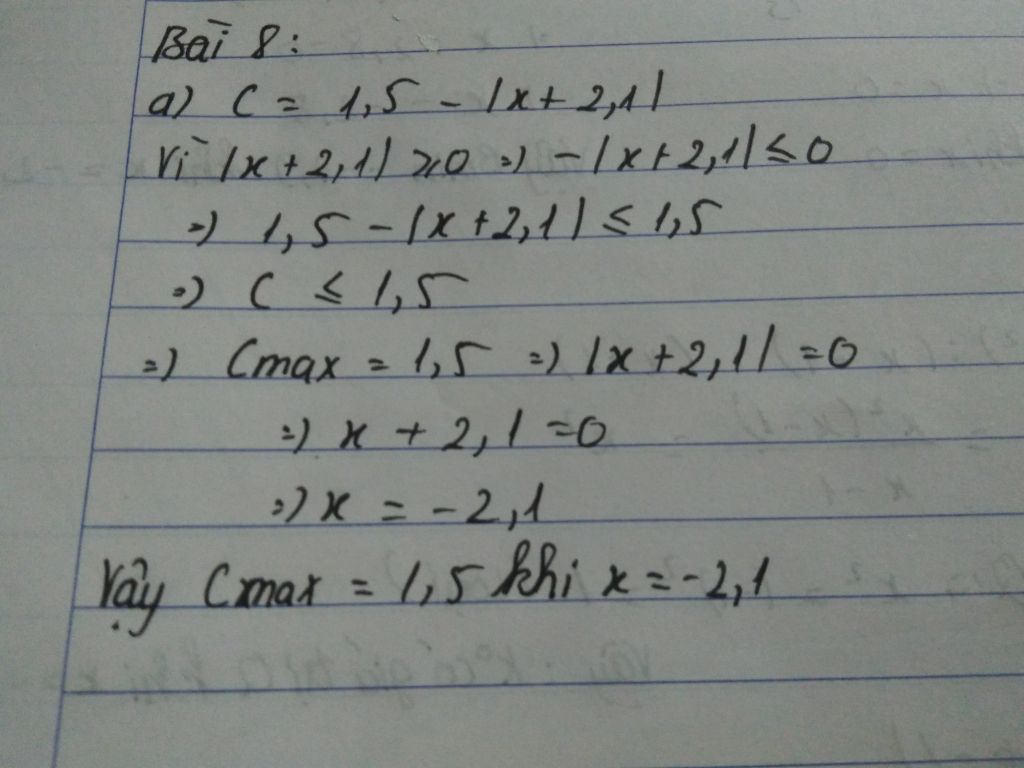 Bài 8:
a) C = 1,5 - |x + 2,1|
Vì |x + 2,1| ≥ 0 => -|x + 2,1| ≤ 0
=> 1,5 - |x + 2,1| ≤ 1,5
=> C ≤ 1,5
=> Cmax = 1,5 => |x + 2,1| = 0
=> x + 2,1 = 0
=> x = -2,1
Vậy Cmax = 1,5 khi x = -2,1